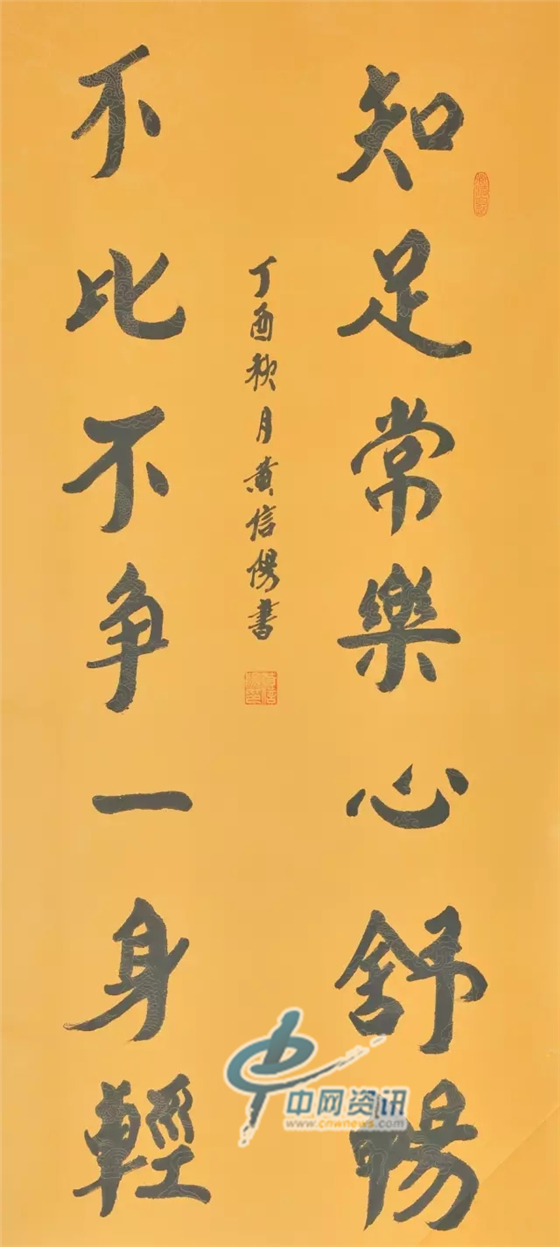 知足常樂心舒暢
不比不争一身輕
丁酉秋月黄信陽書
中网资讯
www.cnwnews.com